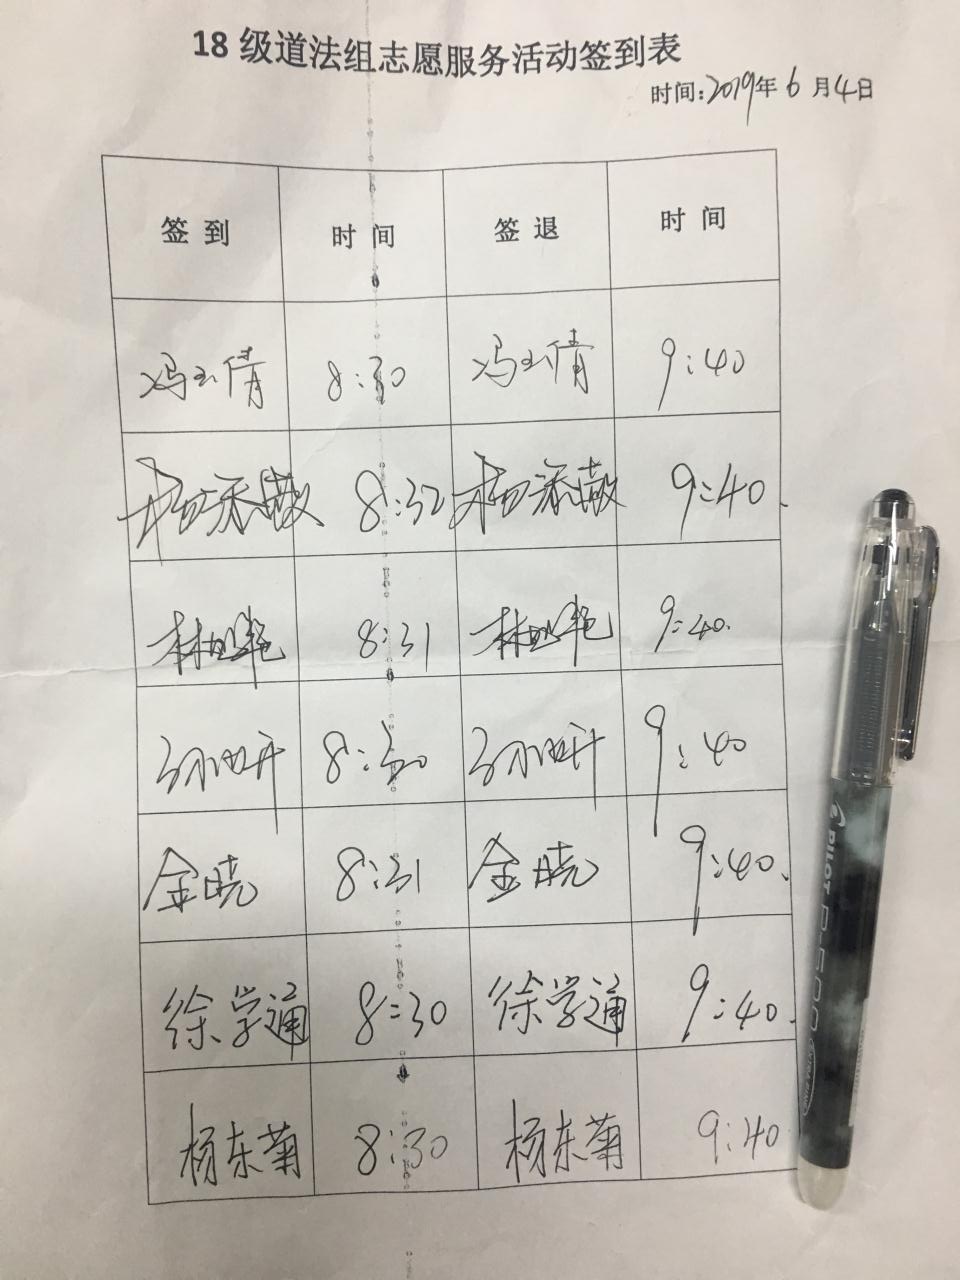 18级道法组志愿服务活动签到表
时间:2019年6月4日
签到 时间 签退 时间
冯玉倩 8:30 冯玉倩 9:40
8:32 9:40.
8:31 9:40.
8:30 9:40
金晓 8:31 金晓 9:40.
徐学通 8:30 徐学通 9:40.
杨东菊 8:30 杨东菊 9:40
PILOT P-500